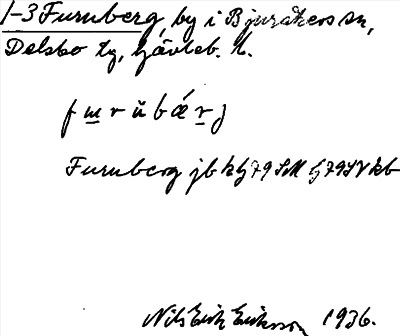 1-3 Furuberg, by i Bjuråkers sn,
Delsbo tg, Gävleb. l.
f u r ŭ b ǽ r j
Furuberg jb k G79 SM G79SV kb
Nils Erik Eriksson 1936.